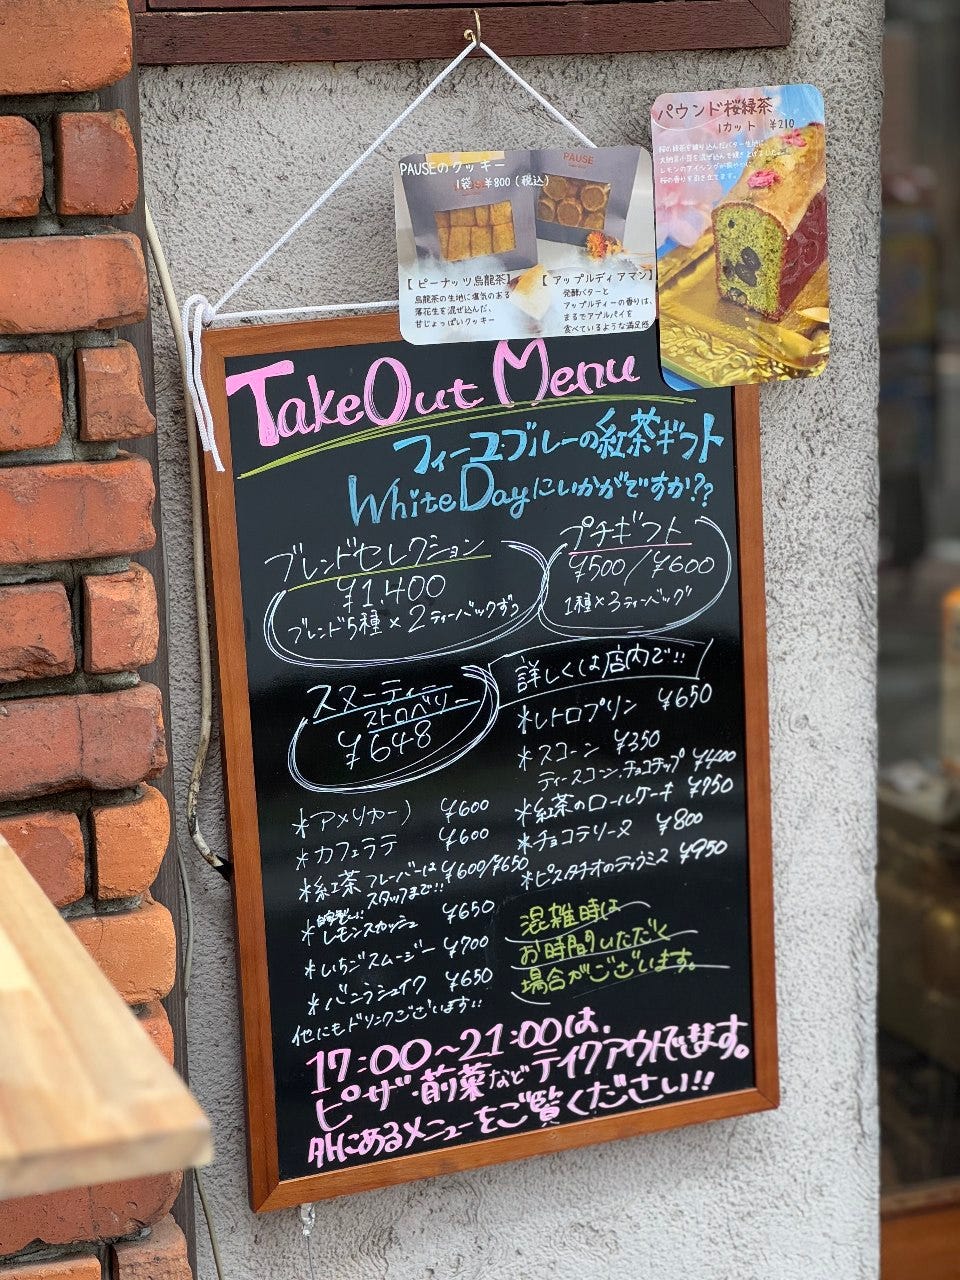 パウンド桜緑茶
1カット ¥210
桜の緑茶を練り込んだバター生地に
大納言小豆を混ぜ込んで焼き上げました
レモンのアイシングが
桜の香りを引き立てます。
PAUSEのクッキー
1袋 ¥800(税込)
PAUSE
【ピーナッツ烏龍茶】
烏龍茶の生地に塩気のある
落花生を混ぜ込んだ、
甘じょっぱいクッキー
【アップルディアマン】
発酵バターと
アップルティーの香りは、
まるでアプルパイを
食べているような満足感
TakeOut Menu
フィーユブルーの紅茶ギフト
WhiteDayにいかがですか??
ブレンドセレクション
¥1,400
ブレンド5種×2ティーバッグずつ
プチギフト
¥500/¥600
1種×3ティーバッグ
詳しくは店内で!!
スヌーティー
ストロベリー
¥648
*アメリカーノ ¥600
*カフェラテ ¥600
*紅茶 フレーバーは ¥600/¥650
スタッフまで!!
*自家製!!
レモンスカッシュ ¥650
*いちごスムージー ¥700
*バニラシェイク ¥650
他にもドリンクございます!!
*レトロプリン ¥650
*スコーン ¥350
ティースコン、チョコチップ ¥400
*紅茶のロールケーキ ¥950
*チョコテリーヌ ¥800
*ピスタチオのティラミス ¥950
混雑時は
お時間いただく
場合がございます。
17:00~21:00は、
ピザ・前菜などテイクアウトできます。
外にあるメニューをご覧ください!!